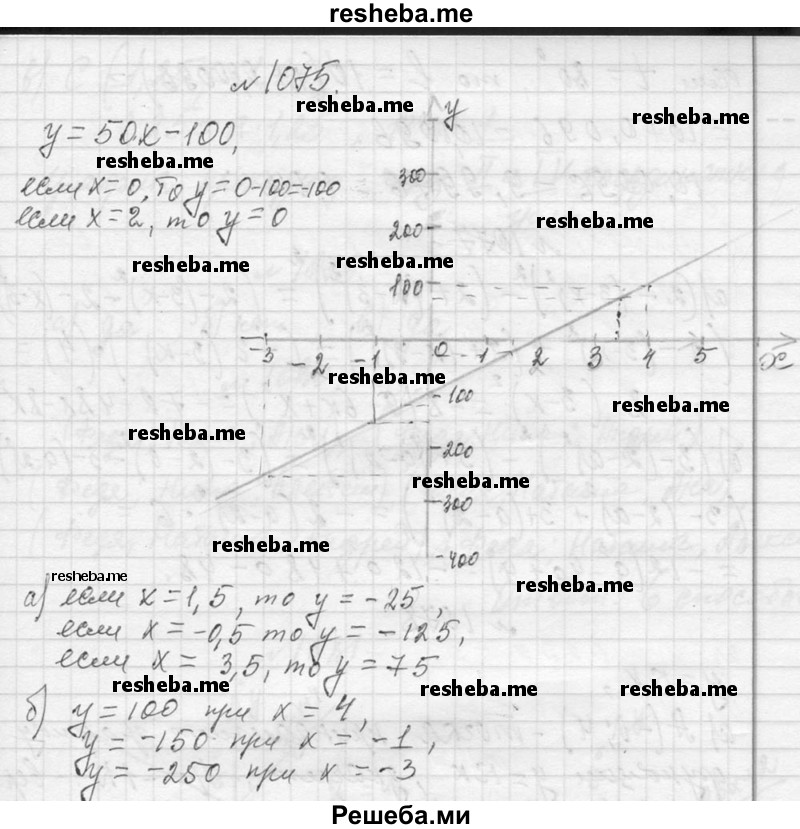 resheba.me
№ 1075.
resheba.me
y
resheba.me
y = 50x - 100,
resheba.me
300
если x = 0, то y = 0-100=-100
если x = 2, то y = 0
resheba.me
200
resheba.me
resheba.me
100
-3 -2 -1 0 1 2 3 4 5 x
resheba.me
-100
resheba.me
resheba.me
-200
resheba.me
-300
resheba.me
-400
resheba.me
resheba.me
а) если x = 1,5, то y = -25,
если x = -0,5 то y = -125,
если x = 3,5, то y = 75
resheba.me
resheba.me
resheba.me
б) y = 100 при x = 4,
y = -150 при x = -1,
y = -250 при x = -3
Решеба.ми